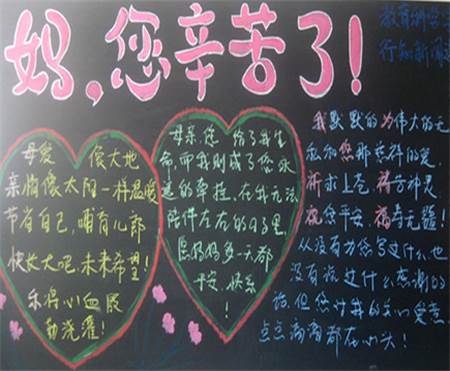 妈,您辛苦了!
教育
行知新闻
母爱 像大地
亲情像太阳一样温暖
节省自己,哺育儿郎
快长大吧,未来希望!
乐将心血展
勤浇灌!
母亲,您 给了我生
命,而我则成了您永
远的牵挂,在我无法
陪伴左右的日子里,
愿妈妈多一天都
平安、快乐
!
我默默的为伟大的无
私的您那祥的爱,
祈求上苍,祷告神灵
祝您平安,福寿无疆!
从没有为您写过什么,也
没有说过什么感谢的
话,但您对我的关心、爱意
点点滴滴都在心头!